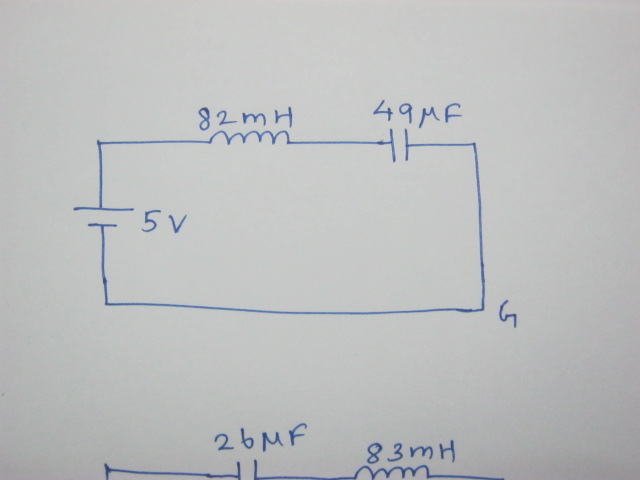 82mH
49μF
5V
G
26μF
83mH